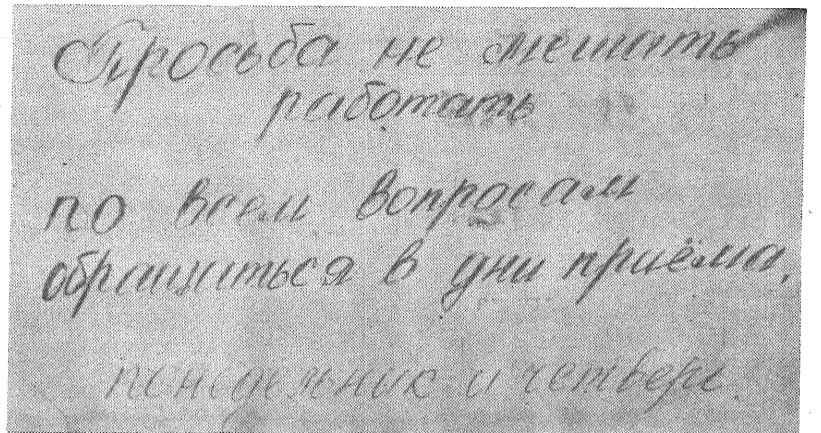 Просьба не мешать
работать
по всем вопросам
обращаться в дни приёма,
понедельник и четверг.